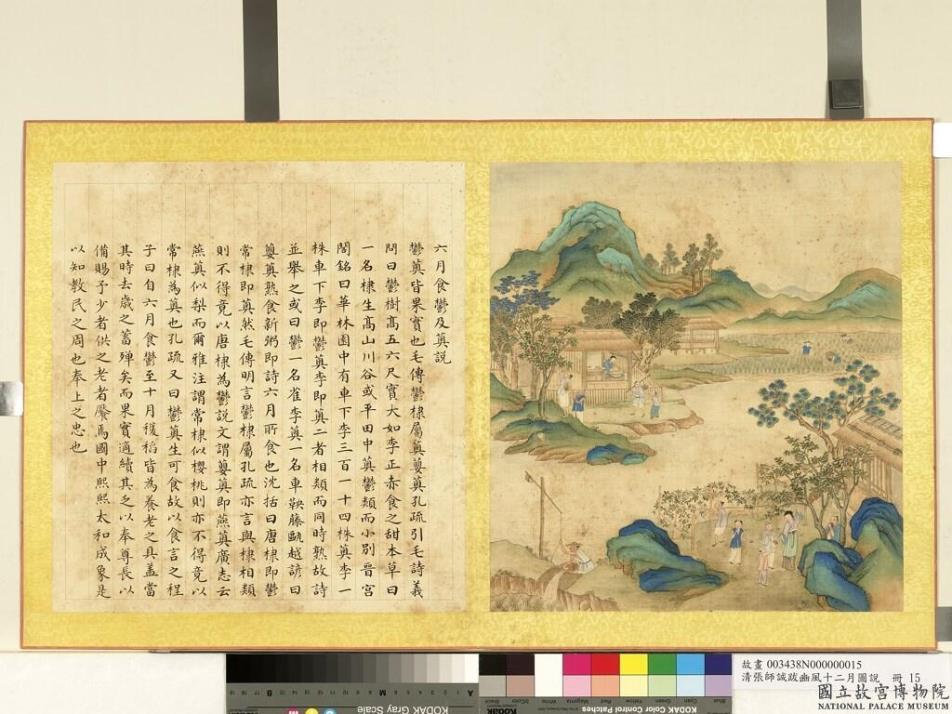 六月食鬱及薁說
鬱薁皆果實也毛傳鬱棣屬薁蘡薁孔疏引毛詩義
問曰鬱樹高五六尺實大如李正赤食之甜本草曰
一名棣生高山川谷或平田中薁鬱類而小別晉宮
閣銘曰華林園中有車下李三百一十四株薁李一
株車下李即鬱薁李即薁二者相類而同時熟故詩
並舉之或曰鬱一名雀李薁一名車鞅藤甌越諺曰
蘡薁熟食新粥即詩六月所食也沈括曰唐棣即鬱
常棣即薁然毛傳明言鬱棣屬孔疏亦言與棣相類
則不得竟以唐棣為鬱說文謂蘡薁即燕薁廣志云
燕薁似梨而爾雅注謂常棣似櫻桃則亦不得竟以
常棣為薁也孔疏又曰鬱薁生可食故以食言之程
子曰自六月食鬱至十月穫稻皆為養老之具蓋當
其時去歲之蓄殫矣而果實適續其乏以奉尊長以
備賜予少者供之老者饜焉國中熙熙太和成象是
以知教民之周也奉上之忠也
KODAK Gray Scale
KODAK Color Control Patches
故畫 003438N000000015
清張師誠跋豳風十二月圖說 冊 15
國立故宮博物院
NATIONAL PALACE MUSEUM